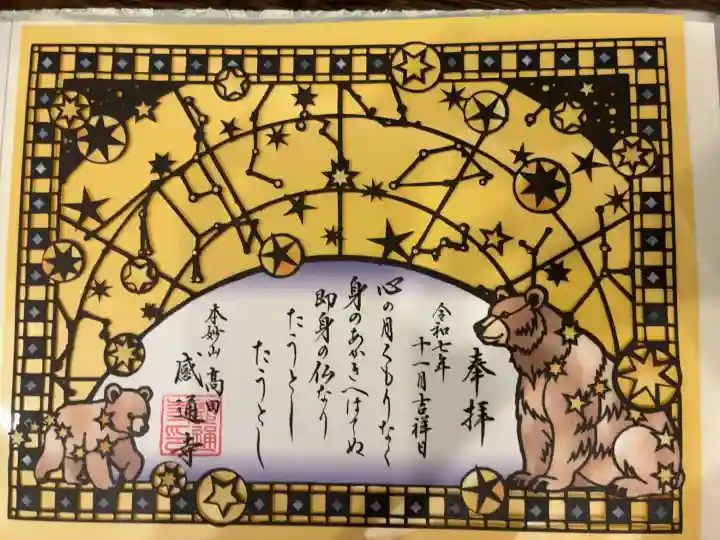 奉拝
令和七年
十一月吉祥日
心の月くもりなく
身のあかきへはてぬ
即身の仏なり
たうとし
たうとし
本妙山 高田
感通寺